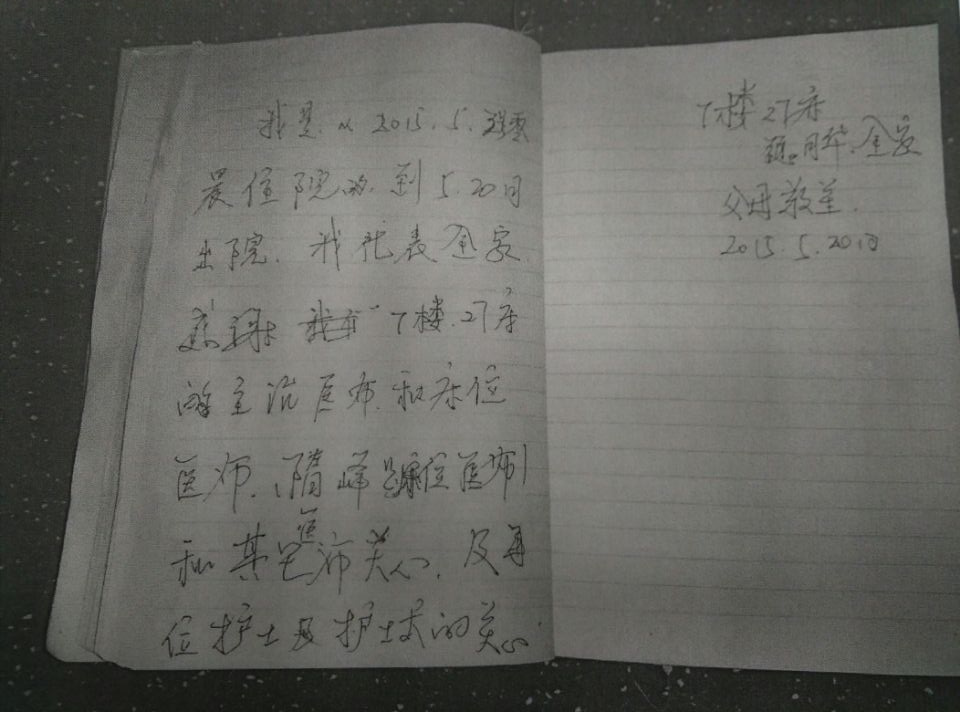 我是从2015.5.凌
晨住院的.到5.20日
出院.我代表全家
感谢 7楼.27床
的主治医师.和床位
医师.隋峰床位医师
和其它医师关心.及每
位护士及护士长的关心
7楼27床
月华.全家
父母敬呈.
2015.5.20日